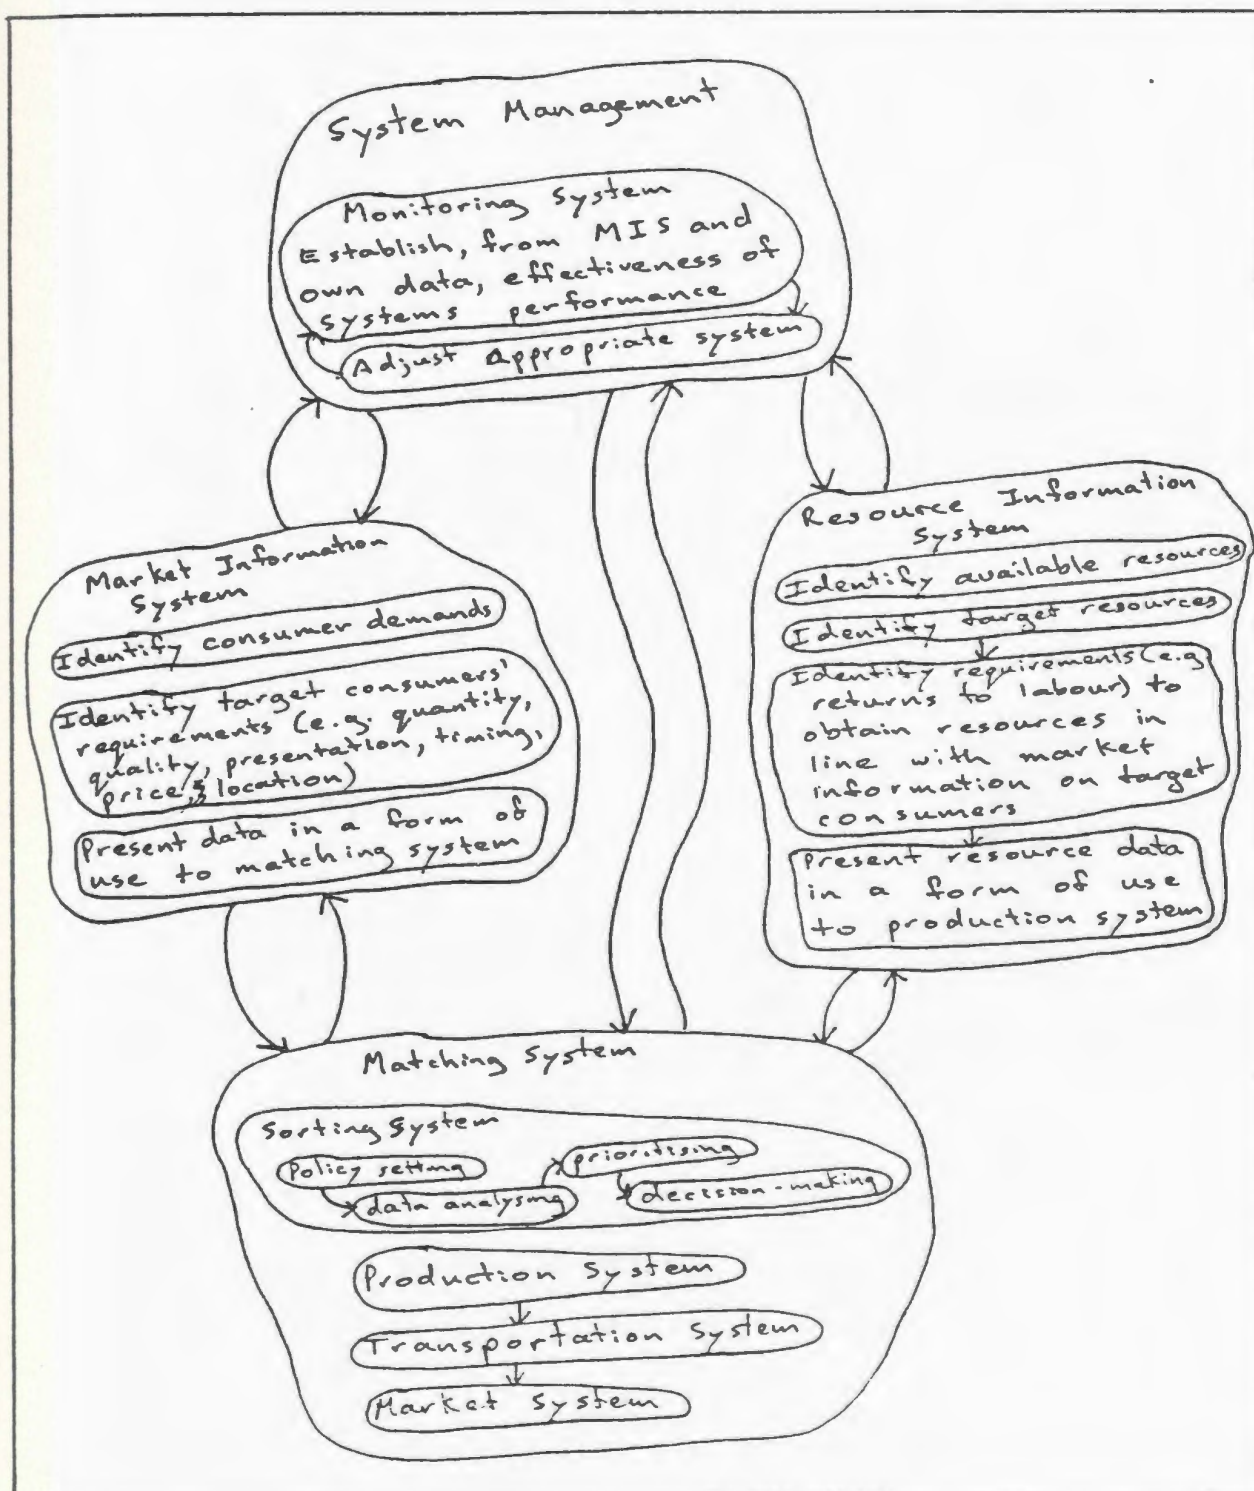 System Management
Monitoring System
Establish, from MIS and
own data, effectiveness of
systems performance
Adjust Appropriate system
Market Information
System
Identify consumer demands
Identify target consumers'
requirements (e.g. quantity,
quality, presentation, timing,
price, & location)
Present data in a form of
use to matching system
Resource Information
System
Identify available resources
Identify target resources
Identify requirements (e.g.
returns to labour) to
obtain resources in
line with market
information on target
consumers
Present resource data
in a form of use
to production system
Matching System
Sorting System
Policy setting
data analysing
prioritising
decision-making
Production System
Transportation System
Market System